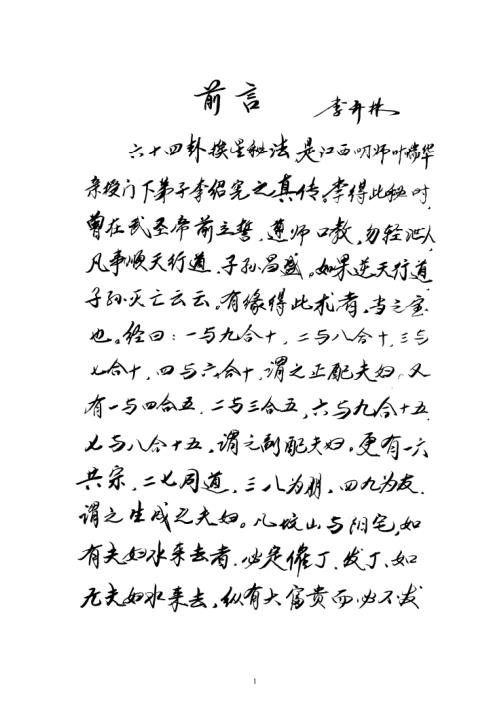 前言
李奔林
六十四卦挨星秘法是江西明师叶瑞华
亲授门下弟子李绍宪之真传。李得此秘时,
曾在武圣帝前立誓.遵师口教.勿轻泄人
凡事顺天行道.子孙昌盛。如果逆天行道
子孙灭亡云云。有缘得此术者.当之宝
也。经曰:一与九合十,二与八合十,三与
七合十,四与六合十,谓之正配夫妇.又
有一与四合五.二与三合五,六与九合十五
七与八合十五,谓之副配夫妇。更有一六
共宗,二七同道,三八为朋,四九为友.
谓之生成之夫妇。凡坟山与阳宅,如
有夫妇水来去者.必定催丁.发丁.如
无夫妇水来去,纵有大富贵而必不发
1